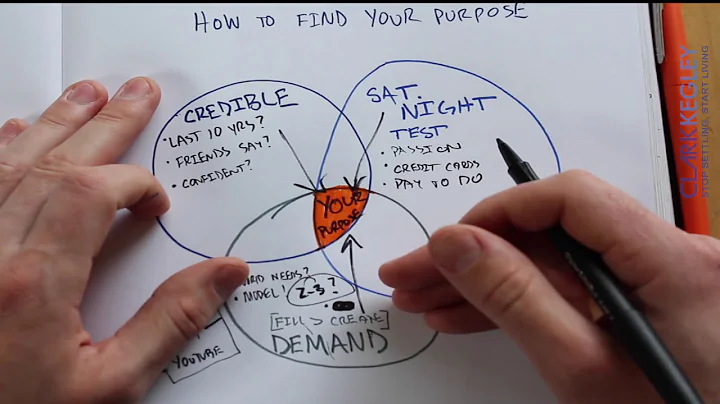 HOW TO FIND YOUR PURPOSE
CREDIBLE
• LAST 10 YRS?
• FRIENDS SAY?
• CONFIDENT?
SAT.
NIGHT
TEST
• PASSION
• CREDIT CARDS
• PAY TO DO
YOUR
PURPOSE
NEEDS?
• MODEL! 2-3?
[FILL > CREATE]
DEMAND
YOUTUBE
CLARK KEGLEY
STOP SETTLING. START LIVING